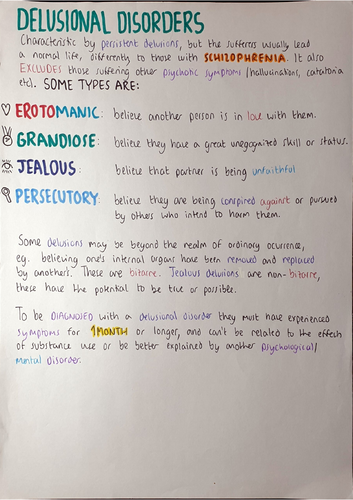 DELUSIONAL DISORDERS
Characteristic by persistent delusions, but the sufferers usually lead
a normal life, differently to those with SCHIZOPHRENIA. It also
EXCLUDES those suffering other psychotic symptoms (hallucinations, catatonia
etc). SOME TYPES ARE:
EROTOMANIC: believe another person is in love with them.
GRANDIOSE: believe they have a great unregognited skill or status.
JEALOUS: believe that partner is being unfaithful
PERSECUTORY: believe they are being conspired against or pursued
by others who intend to harm them.
Some delusions may be beyond the realm of ordinary ocurrence,
eg. believing one's internal organs have been removed and replaced
by another's. These are bizarre. Jealous delusions are non-bizarre,
these have the potential to be true or possible.
To be DIAGNOSED with a delusional disorder they must have experienced
symptoms for 1 MONTH or longer, and can't be related to the effects
of substance use or be better explained by another psychological/
mental disorder.